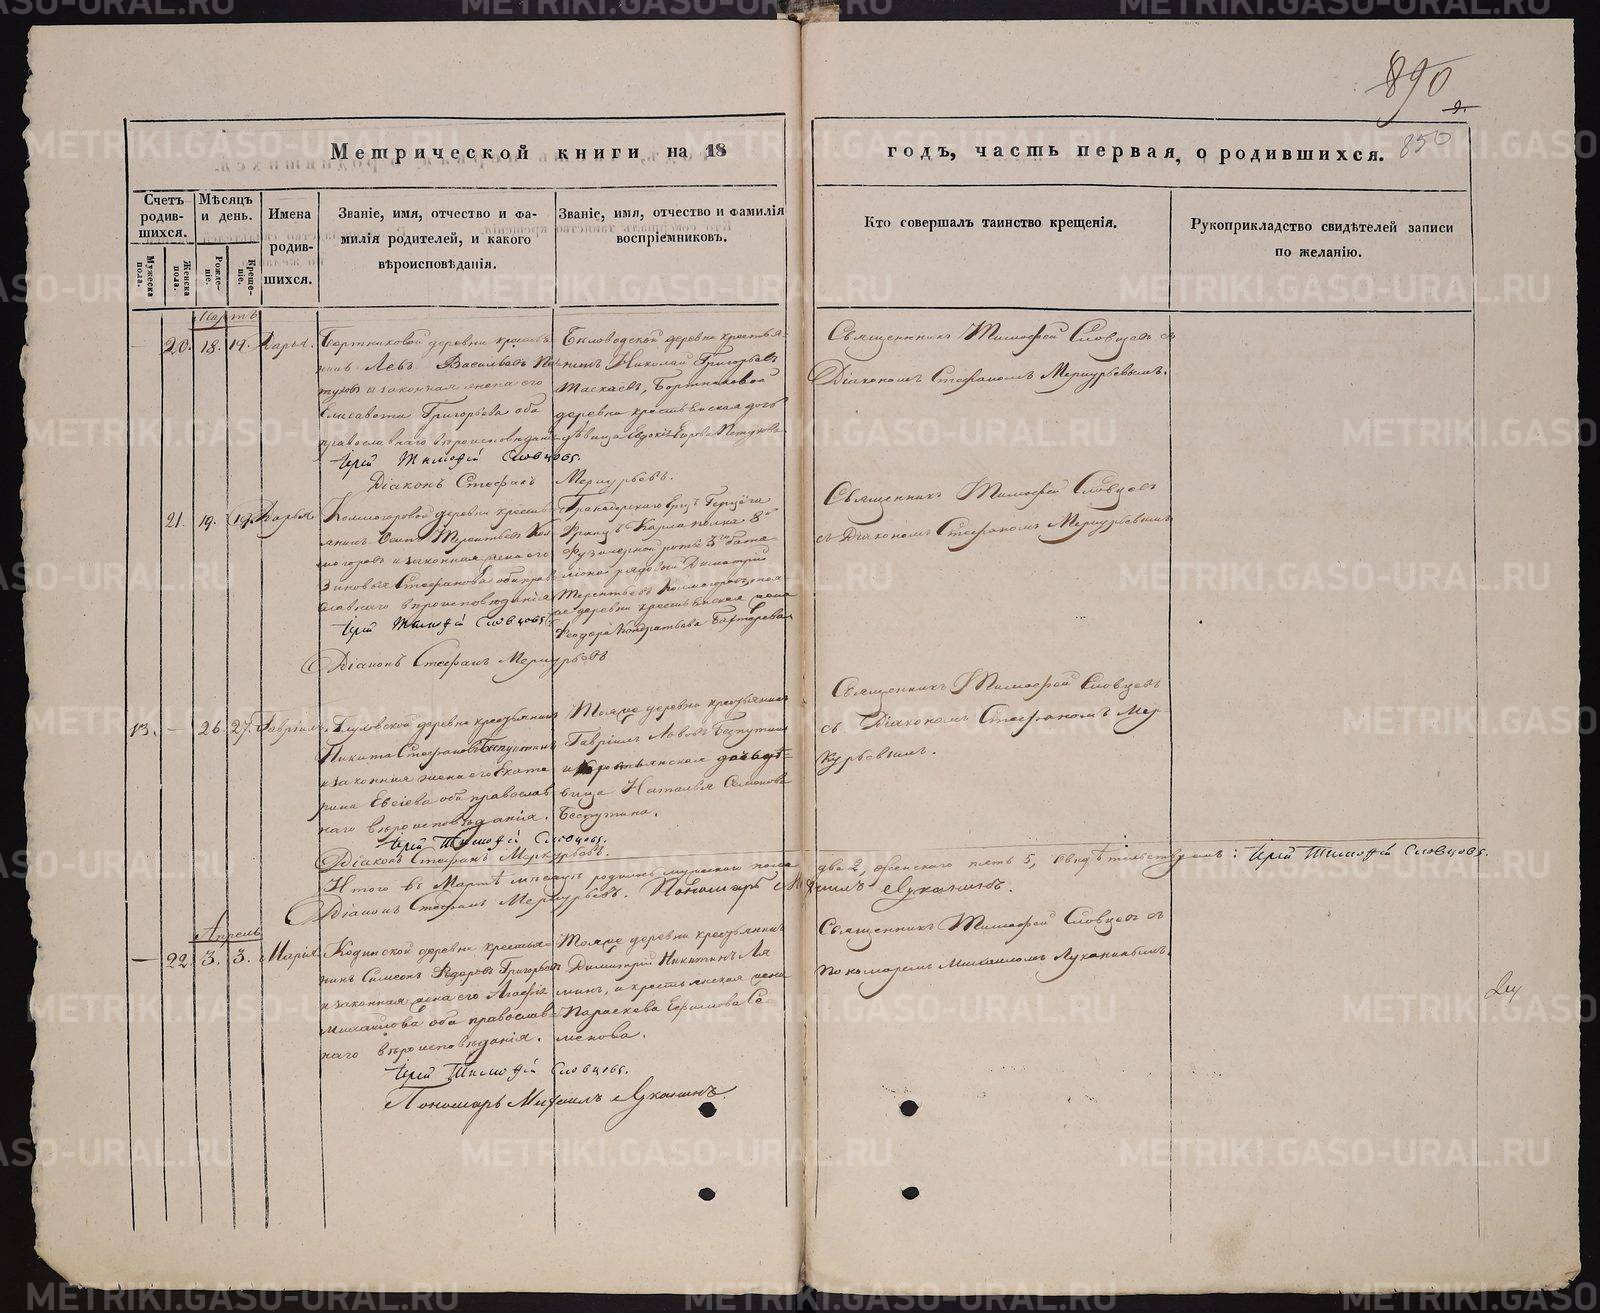 890
850
Метрической книги на 18
годъ, часть первая, о родившихся.
Счетъ родив-шихся.
Мужеска пола.
Женска пола.
Мѣсяцъ и день.
Рожде-ніе.
Креще-ніе.
Имена
родив-
шихся.
Званіе, имя, отчество и фа-
милія родителей, и какого
вѣроисповѣданія.
Званіе, имя, отчество и фамилія
воспріемниковъ.
Кто совершалъ таинство крещенія.
Рукоприкладство свидѣтелей записи
по желанію.
Мартъ
20. 18. 19. Дарья.
деревни крестья-
нинъ Левъ Васильевъ Пе-
туховъ и законная жена его
Елисавета Григорьева оба
православнаго вѣроисповѣданія
Іерей Тимофей Словцовъ.
Діаконъ Стефанъ Меркурьевъ.
Бѣловодской деревни крестья-
нинъ Николай Григорьевъ
Таскаевъ,
деревни крестьянская дочь
дѣвица Петухова.
Священникъ Тимофей Словцевъ съ
Діакономъ Стефаномъ Меркурьевымъ.
21. 19. 19. Дарья
Колмогоровой деревни кресть-
янинъ Терентьевъ Кол-
могоровъ и законная жена его
Зиновья Стефанова оба прав
славнаго вѣроисповѣданія
Іерей Тимофей Словцовъ
Діаконъ Стефанъ Меркурьевъ
Гренадерскаго Герцога
Францъ Карла полка 8й
Фузилерной роты 3го бата-
ліона рядовой Димитрій
Терентьевъ Колмогоровъ,
деревни крестьянская жена
Феодора Кондратьева
Священникъ Тимофей Словцевъ
съ Діакономъ Стефаномъ Меркурьевымъ
13. — 26. 27. Гавріилъ.
деревни крестьянинъ
Никита Стефановъ Беспутинъ
и законная жена его Екате
рина Евсіева оба православ
наго вѣроисповѣданія.
Іерей Тимофей Словцовъ.
Діаконъ Стефанъ Меркурьевъ.
Тояже деревни крестьянинъ
Гавріилъ Львовъ Беспутинъ
и крестьянская дочь дѣ-
вица Наталья Семенова
Беспутина.
Священникъ Тимофей Словцевъ
съ Діакономъ Стефаномъ Мер-
курьевымъ.
Итого въ Мартѣ мѣсяцѣ родилось мужеска пола два 2, женскаго пять 5, свидѣтельствуемъ: Іерей Тимофей Словцовъ.
Діаконъ Стефанъ Меркурьевъ. Пономарь Михаилъ Луканинъ.
Апрель
— 22. 3. 3. Марія
Кодинской деревни крестья-
нинъ Симеонъ Федоровъ Григорьевъ
и законная жена его Агафья
Михайлова оба православ-
наго вѣроисповѣданія.
Іерей Тимофей Словцовъ.
Пономарь Михаилъ Луканинъ.
Тояже деревни крестьянинъ
Димитрій Никитинъ Ля
минъ, и крестьянская жена
Параскева Ефимова Се-
менова.
Священникъ Тимофей Словцевъ съ
Пономаремъ Михаиломъ Луканинымъ.
METRIKI.GASO-URAL.RU